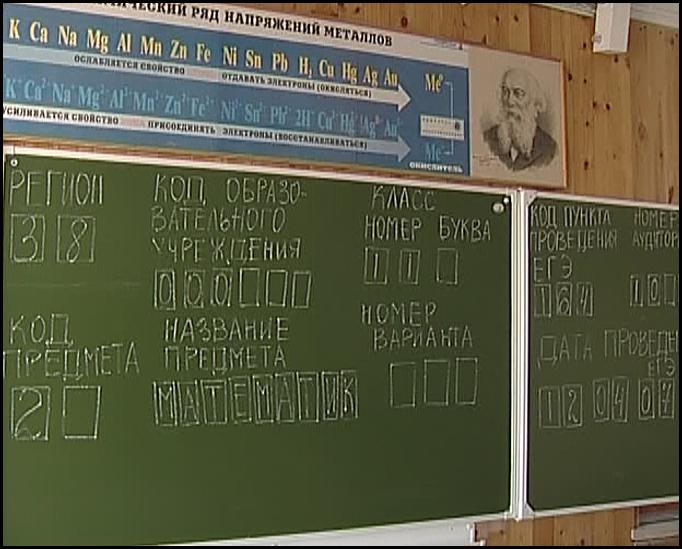 РЯД НАПРЯЖЕНИЙ МЕТАЛЛОВ
K Ca Na Mg Al Mn Zn Fe Ni Sn Pb H₂ Cu Hg Ag Au
ОСЛАБЛЯЕТСЯ СВОЙСТВО ОТДАВАТЬ ЭЛЕКТРОНЫ (ОКИСЛЯТЬСЯ)
Me⁰
УСИЛИВАЕТСЯ СВОЙСТВО ПРИСОЕДИНЯТЬ ЭЛЕКТРОНЫ (ВОССТАНАВЛИВАТЬСЯ)
ОКИСЛИТЕЛЬ
РЕГИОН
38
КОД ОБРАЗО-
ВАТЕЛЬНОГО
УЧРЕЖДЕНИЯ
000
КЛАСС
НОМЕР БУКВА
11
КОД
ПРЕДМЕТА
2
НАЗВАНИЕ
ПРЕДМЕТА
МАТЕМАТИК
НОМЕР
ВАРИАНТА
КОД ПУНКТА
ПРОВЕДЕНИЯ
ЕГЭ
НОМЕР
АУДИТОР
10
ДАТА ПРОВЕДЕ
ЕГЭ
12 04 07